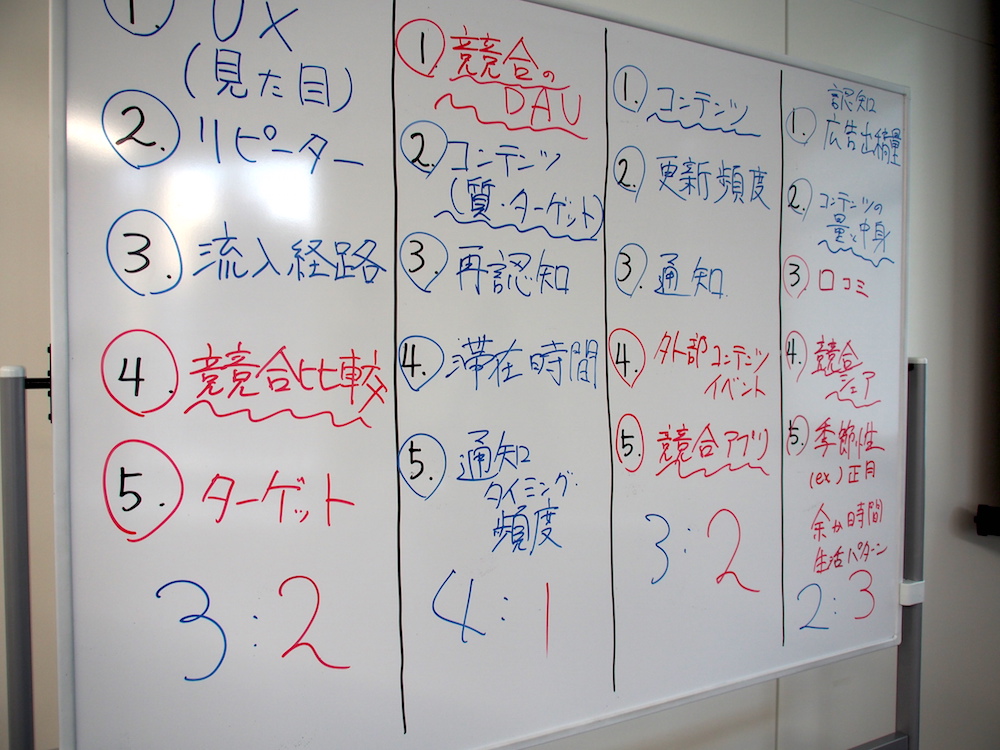 1. UX
(見た目)
2. リピーター
3. 流入経路
4. 競合比較
5. ターゲット
3:2
1 競合の
DAU
2. コンテンツ
(質・ターゲット)
3. 再認知
4. 滞在時間
5. 通知
タイミング・
頻度
4:1
1. コンテンツ
2. 更新頻度
3. 通知
4. 外部コンテンツ
イベント
5. 競合アプリ
3:2
認知
1. 広告出稿量
2. コンテンツの
量・中身
3 口コミ
4. 競合
シェア
5. 季節性
(ex) 正月
余か時間
生活パターン
2:3